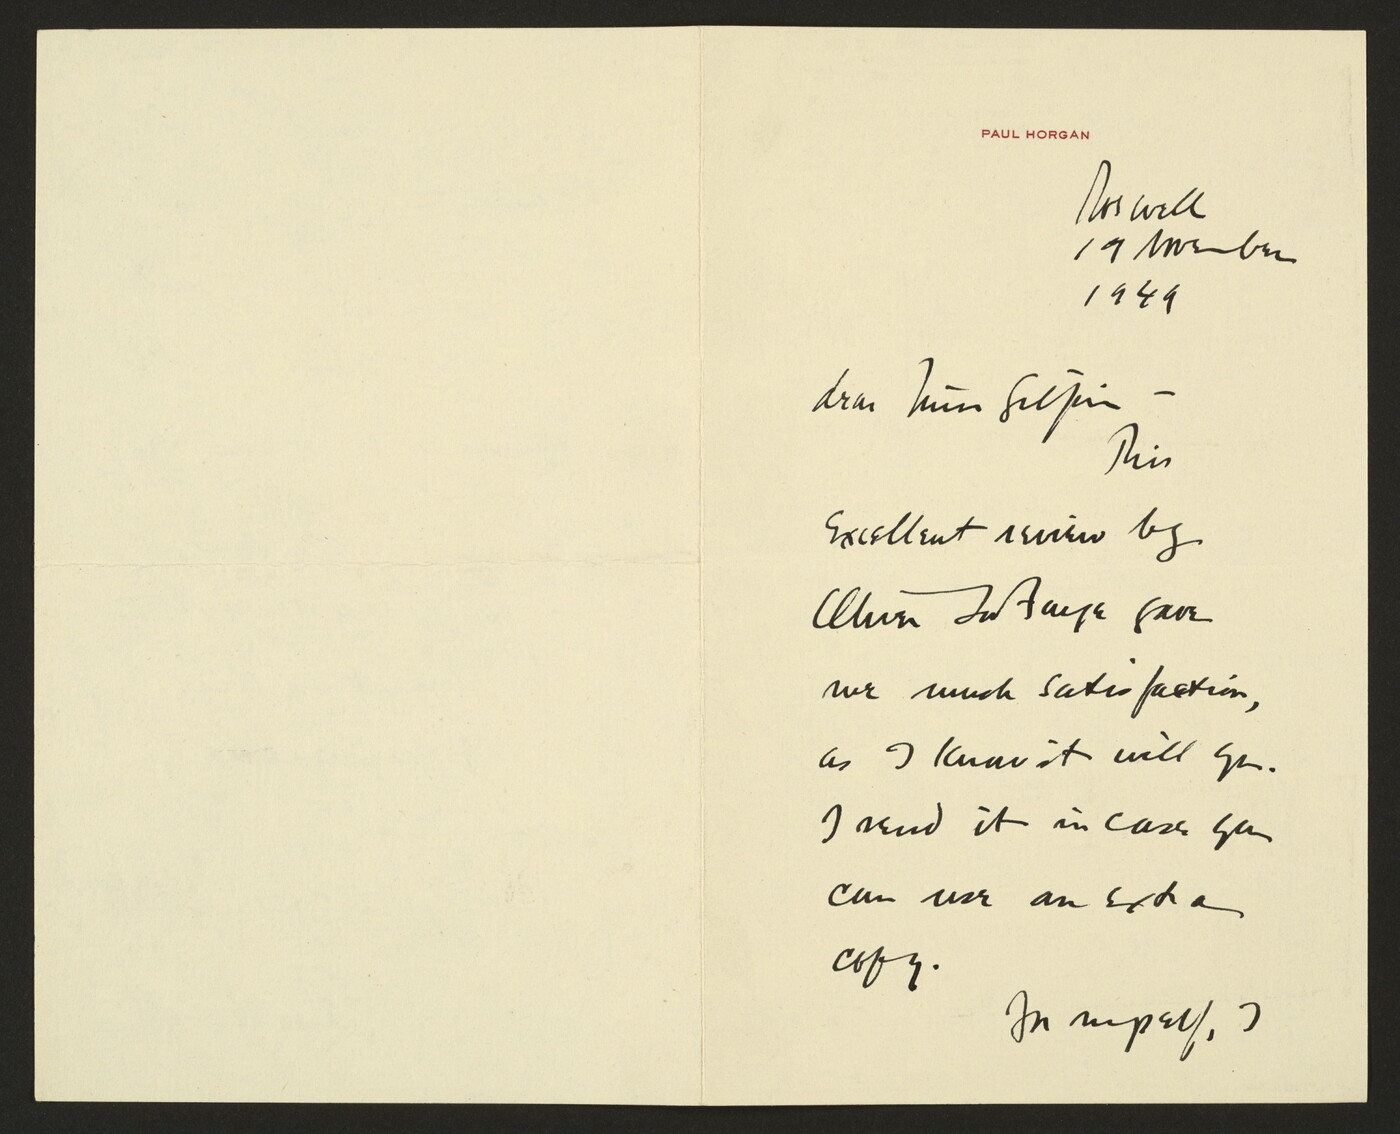 PAUL HORGAN
Roswell
19 November
1949
dear Miss Gilpin –
This
Excellent review by
Oliver La Farge gave
me much satisfaction,
as I know it will you.
I send it in case you
can use an extra
copy.
For myself, I